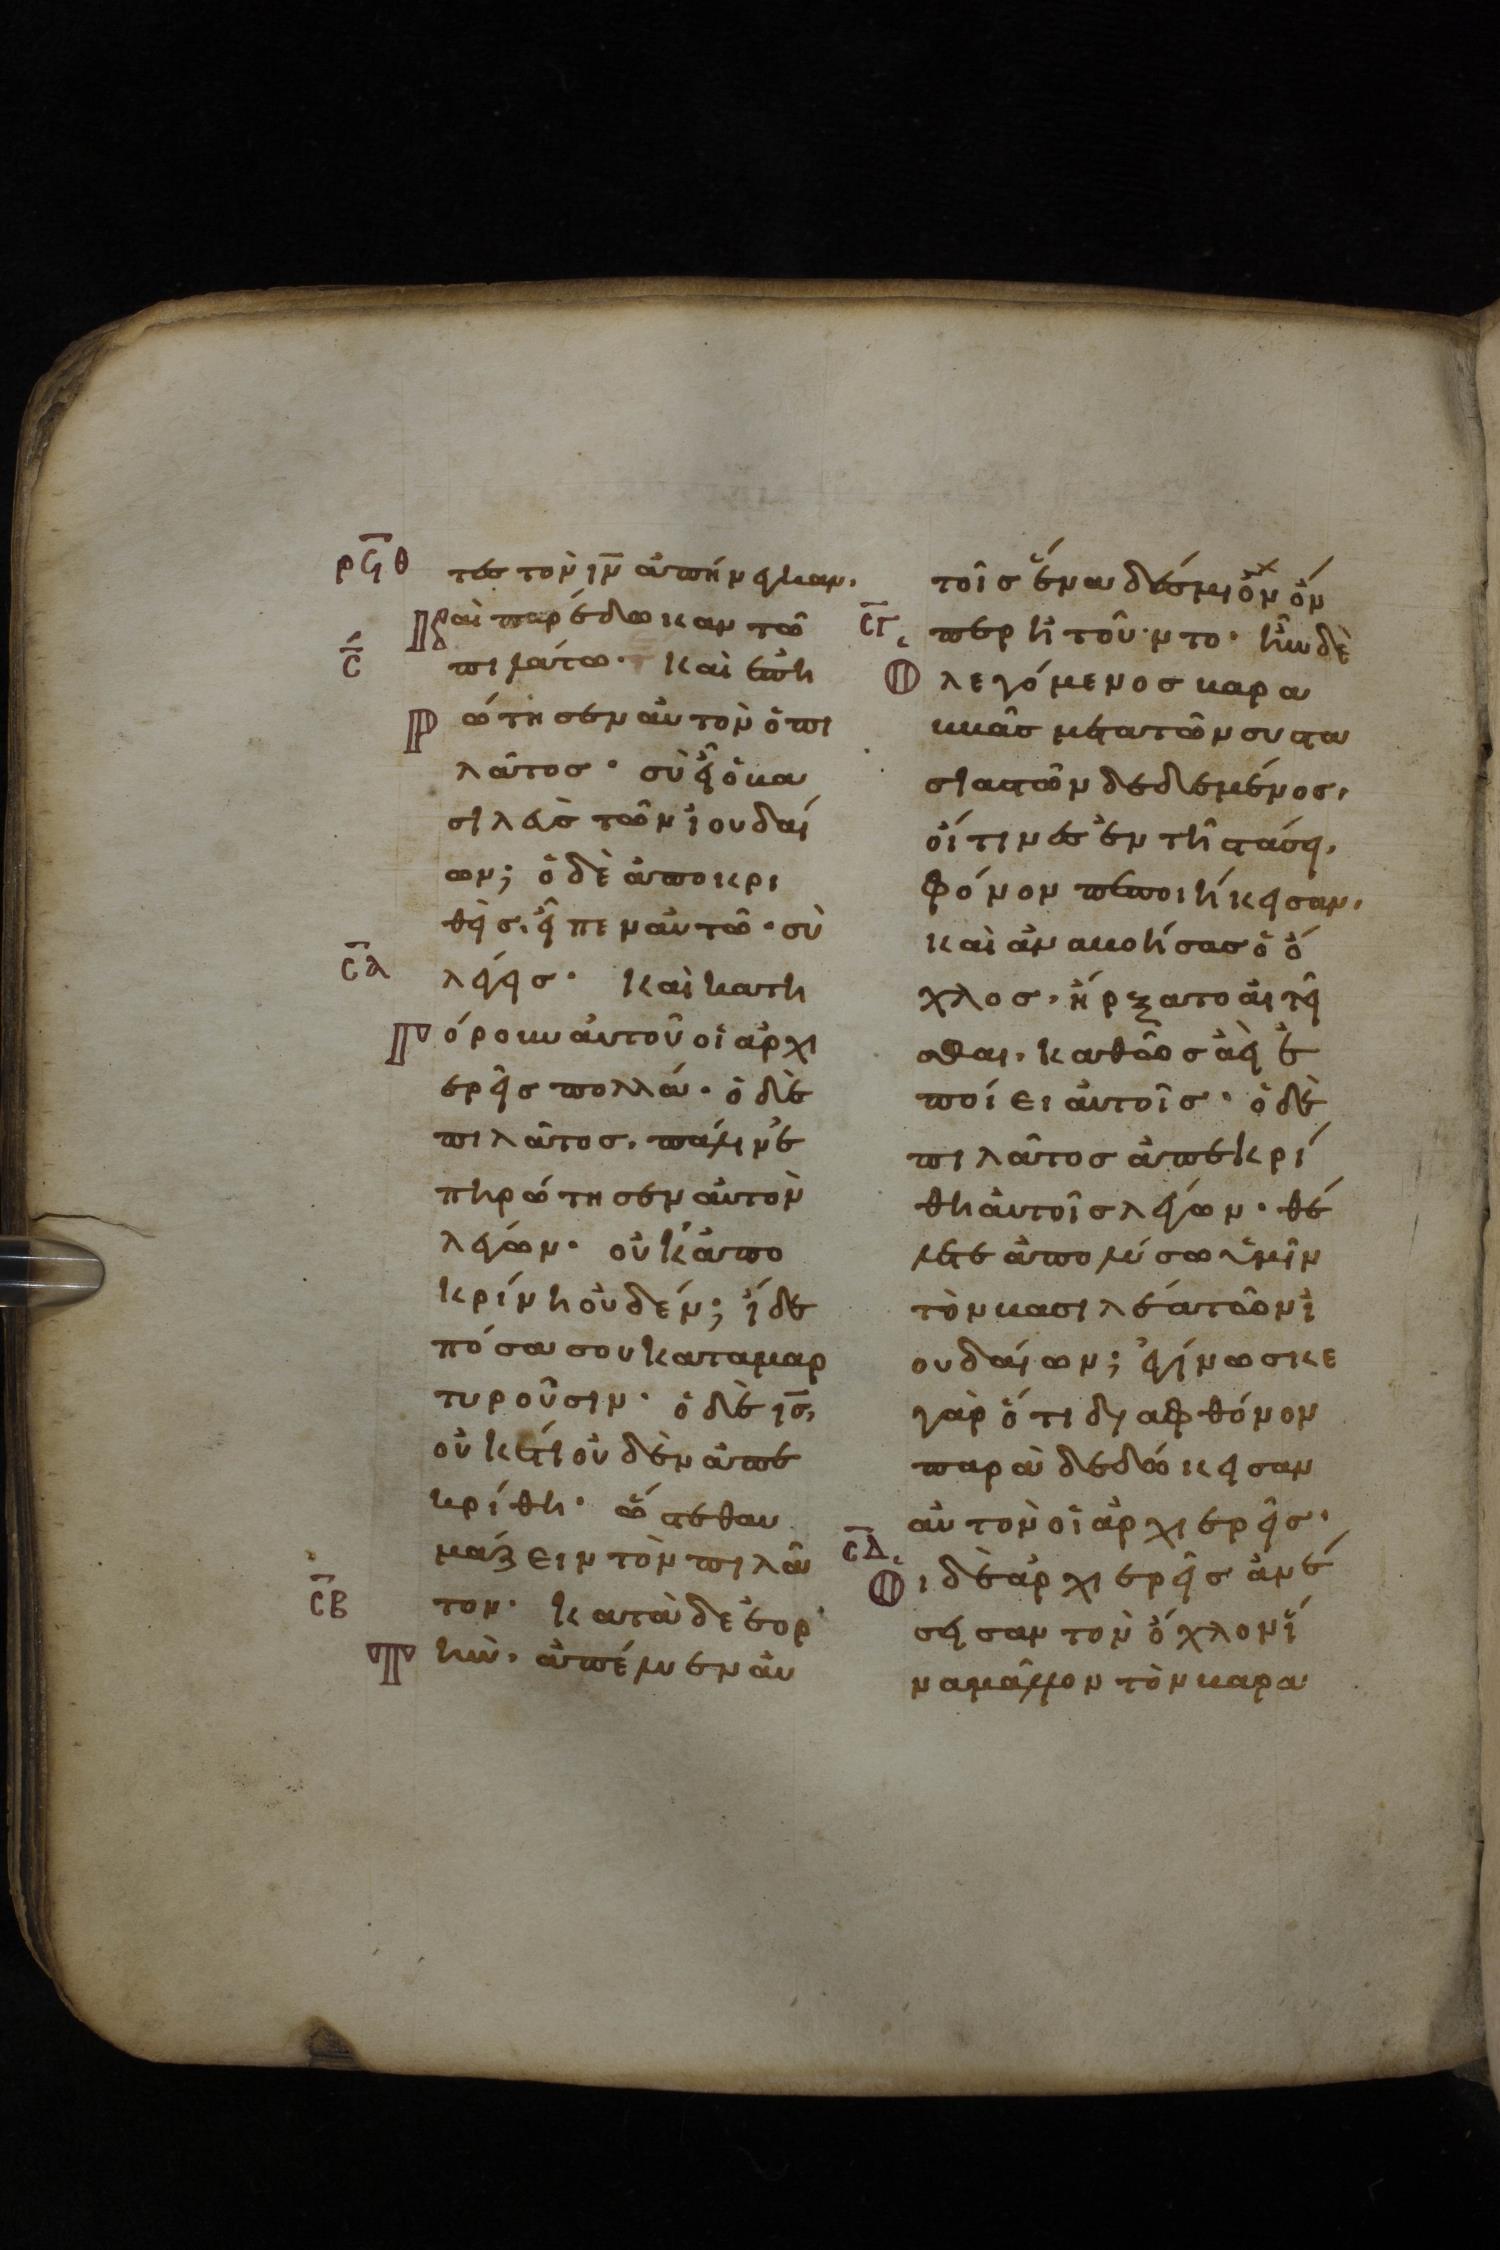 ρϟθ
τες τὸν ιν̅ ἀπήνεγκαν.
Καὶ παρέδωκαν τῶ
σ̅
πιλάτω· καὶ ἐπη
ρώτησεν αὐτὸν ὁ πι
λᾶτος· σὺ εἶ ὁ βα
σιλεὺς τῶν ἰουδαί
ων; ὁ δὲ ἀποκρι
θεὶς, εἶπεν αὐτῶ· σὺ
σ̅α
λέγεις· καὶ κατη
Γόρουν αὐτοῦ οἱ ἀρχι
ερεῖς πολλά· ὁ δὲ
πιλᾶτος, πάλιν ἐ
πηρώτησεν αὐτὸν
λέγων· οὐκ ἀπο
κρίνη οὐδέν; ἴδε
πόσα σου καταμαρ
τυροῦσιν· ὁ δὲ ισ̅,
οὐκέτι οὐδὲν ἀπε
κρίθη· ὥστε θαυ
μάζειν τὸν πιλᾶ
σ̅β
τον· κατὰ δὲ ἑορ
Τὴν, ἀπέλυεν αὐ
τοῖς ἕνα δέσμιον ὅν
σ̅γ
περ ἠτοῦντο· ἦν δὲ
Ὁ λεγόμενος βαρα
ββᾶς μετὰ τῶν συστα
σιαστῶν δεδεμένος,
οἵτινες ἐν τῆ στάσει,
φόνον πεποιήκεισαν,
καὶ ἀναβοήσας ὁ ὄ
χλος, ἤρξατο αἰτεῖ
σθαι, καθὼς ἀεὶ ἐ
ποίει αὐτοῖς· ὁ δὲ
πιλᾶτος ἀπεκρί
θη αὐτοῖς λέγων· θέ
λετε ἀπολύσω ὑμῖν
τὸν βασιλέα τῶν ἰ
ουδαίων; ἐγίνωσκε
γὰρ ὅτι διὰ φθόνον
παραδεδώκεισαν
αὐτὸν οἱ ἀρχιερεῖς·
σ̅δ
Οἱ δὲ ἀρχιερεῖς ἀνέ
σεισαν τὸν ὄχλον ἵ
να μᾶλλον τὸν βαρα